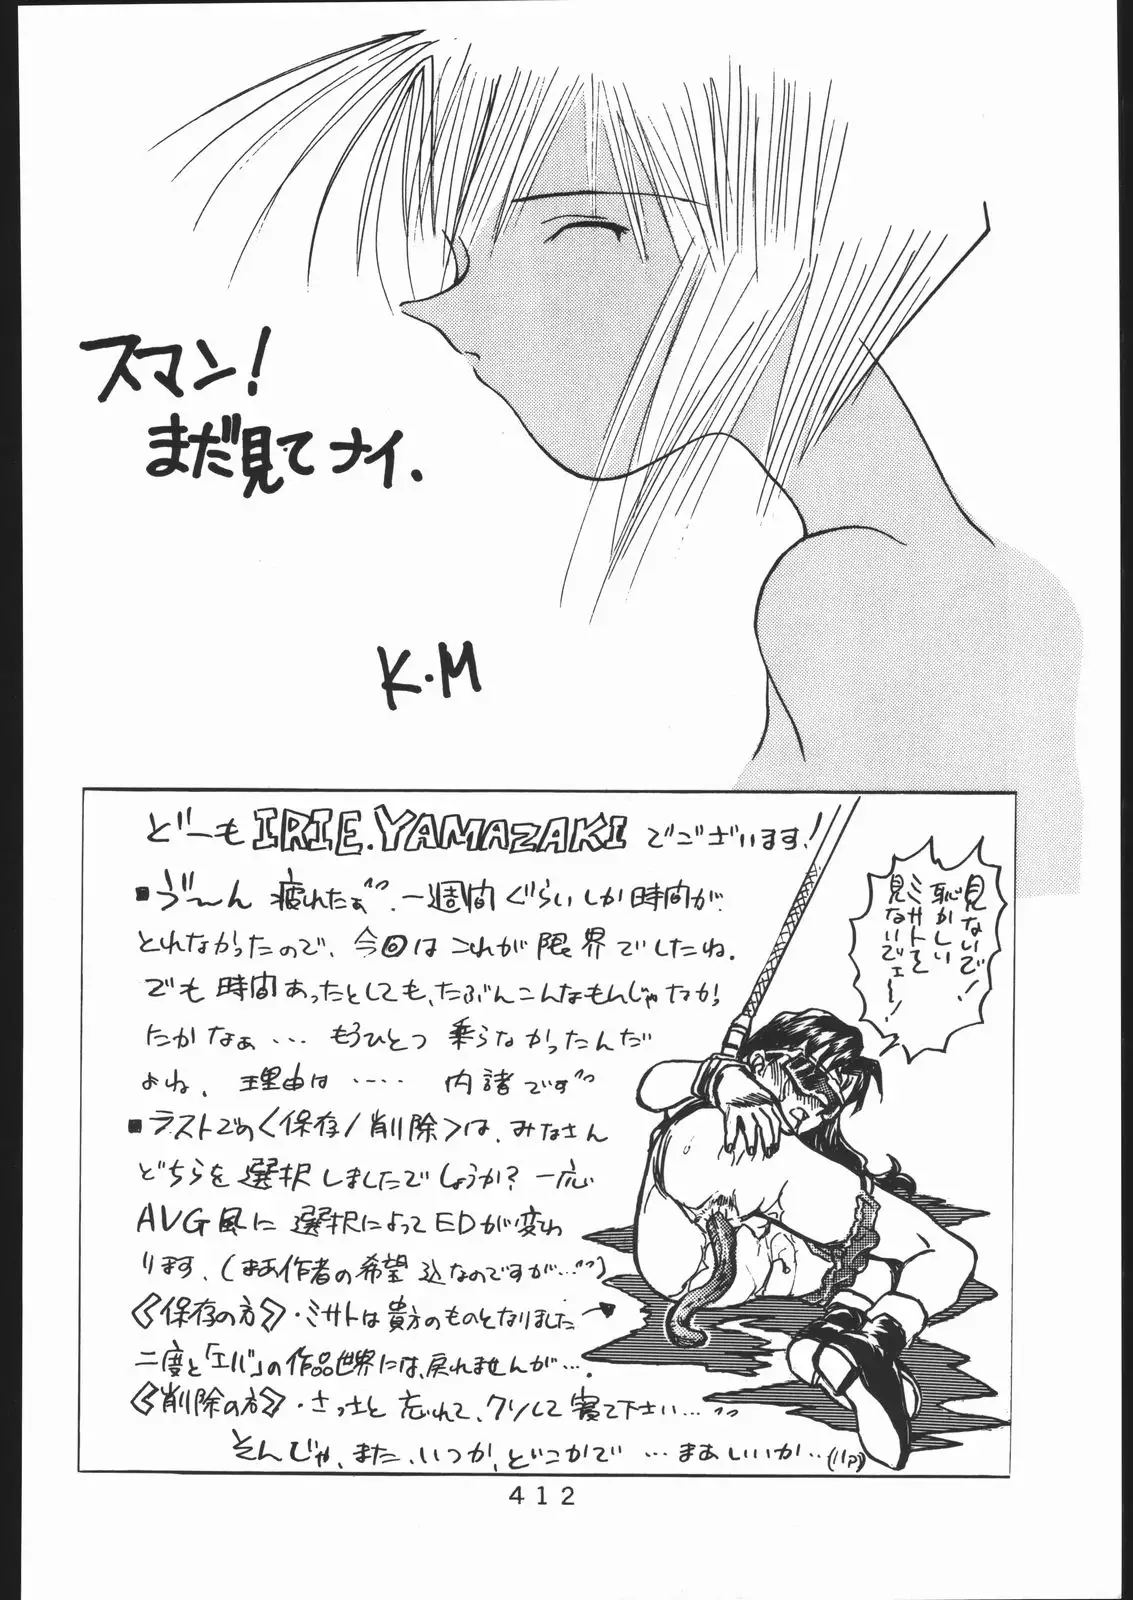 スマン!
まだ見てナイ.
K.M
どーも IRIE.YAMAZAKI でございます!
■う〜ん 疲れたぁ". 一週間ぐらいしか時間が
とれなかったので、今回はこれが限界でしたね.
でも時間あったとしても、たぶんこんなもんじゃなか
たかなぁ… もうひとつ 乗らなかったんだ
よね. 理由は ‥‥ 内諸です"
■ラストでの〈保存/削除〉は、みなさん
どちらを選択しましたでしょうか? 一応
AVG風に 選択によってEDが変わ
ります. (まあ作者の希望込なのですが…")
《保存の方》・ミサトは貴方のものとなりました
二度と「エバ」の作品世界には、戻れませんが….
《削除の方》・さっさと 忘れて、クソして寝て下さい…"
そんじゃ、また、いつか、どこかで …まあいいか‥(11P)
見ないで!
恥かしい
ミサトを
見ないでェ〜!
412